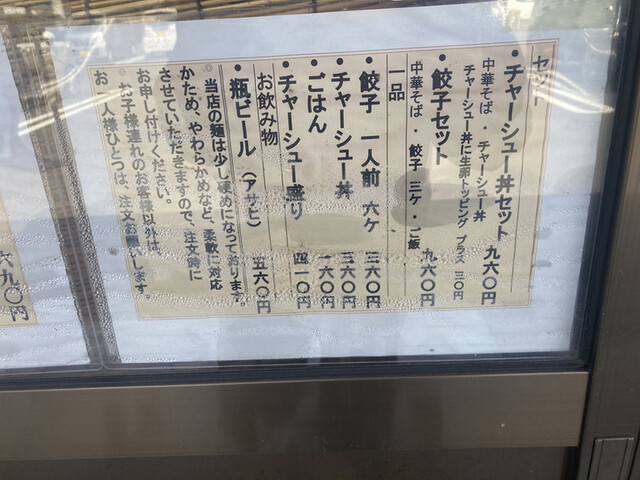 セット
・チャーシュー丼セット 九六〇円
中華そば・チャーシュー丼
チャーシュー丼に生卵トッピング プラス 三〇円
・餃子セット 九六〇円
中華そば・餃子 三ケ・ご飯
一品
・餃子 一人前 六ケ 三六〇円
・チャーシュー丼 三六〇円
・ごはん 一六〇円
・チャーシュー盛り 四一〇円
お飲み物
・瓶ビール（アサヒ） 五六〇円
当店の麺は少し硬めになっております。
かため、やわらかめなど、柔軟に対応
させていただきますので、注文時に
お申し付けください。
お子様連れのお客様以外は、
お一人様ひとつは、注文お願いします。
六九〇円